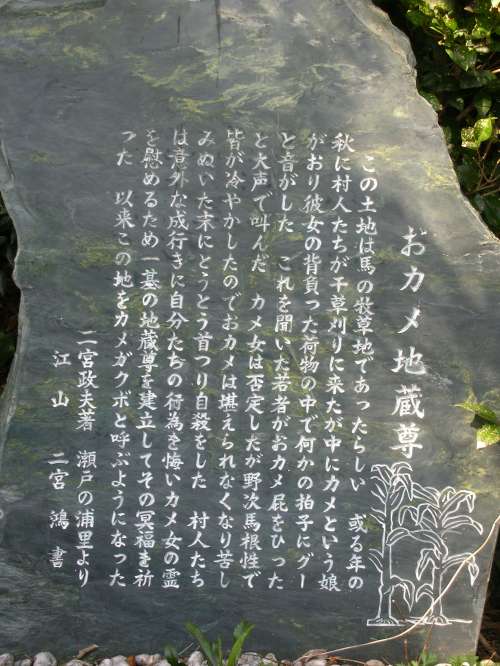 おカメ地蔵尊
この土地は馬の牧草地であったらしい 或る年の
秋に村人たちが干草刈りに来たが中にカメという娘
がおり彼女の背負った荷物の中で何かの拍子にグー
と音がした これを聞いた若者がおカメ屁をひった
と大声で叫んだ カメ女は否定したが野次馬根性で
皆が冷やかしたのでおカメは堪えられなくなり苦し
みぬいた末にとうとう首つり自殺をした 村人たち
は意外な成行きに自分たちの行為を悔いカメ女の霊
を慰めるため一基の地蔵尊を建立してその冥福を祈
った 以来この地をカメガクボと呼ぶようになった
二宮政夫著 瀬戸の浦里より
江山 二宮鴻書